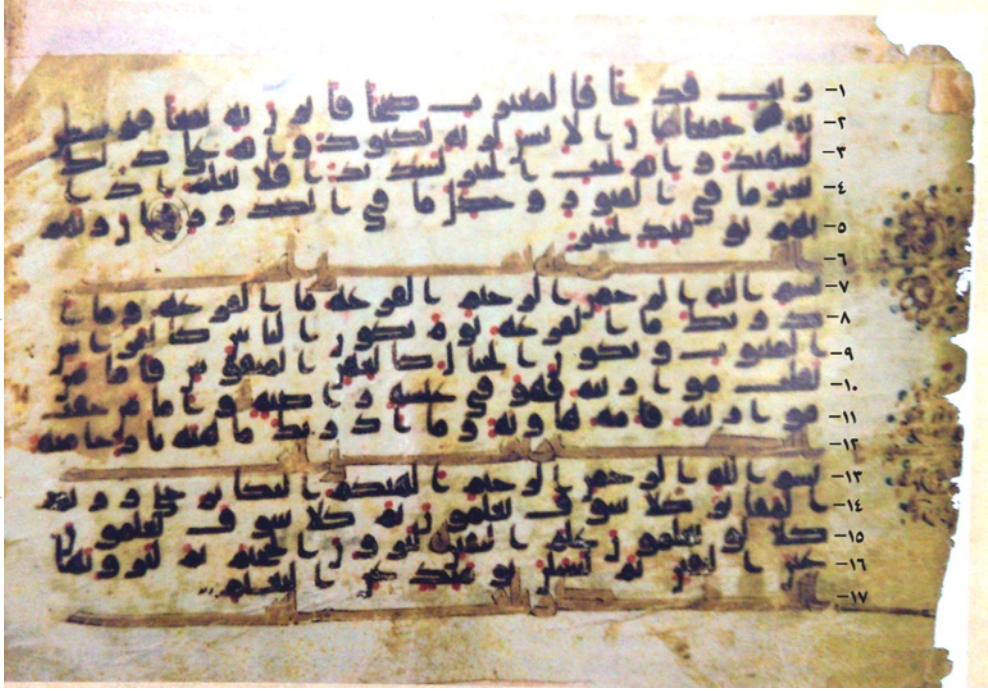 ١- وريت قدحا فالمغيرت صبحا فاثرن به نقعا فوسطن
٢- به جمعا ان الانسن لربه لكنود وانه على ذلك
٣- لشهيد وانه لحب الخير لشديد افلا يعلم اذا
٤- بعثر ما في القبور وحصل ما في الصدور ان ربهم
٥- بهم يومئذ لخبير
٦-
٧- بسم الله الرحمن الرحيم القارعه ما القارعه وما ا
٨- دريك ما القارعه يوم يكون الناس كالفراش
٩- المبثوث وتكون الجبال كالعهن المنفوش فاما من
١٠- ثقلت موازينه فهو في عيشه راضيه واما من خفت
١١- موازينه فامه هاويه وما ادريك ما هيه نار حاميه
١٢-
١٣- بسم الله الرحمن الرحيم الهيكم التكاثر حتى زرتم
١٤- المقابر كلا سوف تعلمون ثم كلا سوف تعلمون
١٥- كلا لو تعلمون علم اليقين لترون الجحيم ثم لترونها
١٦- عين اليقين ثم لتسلن يومئذ عن النعيم
١٧-